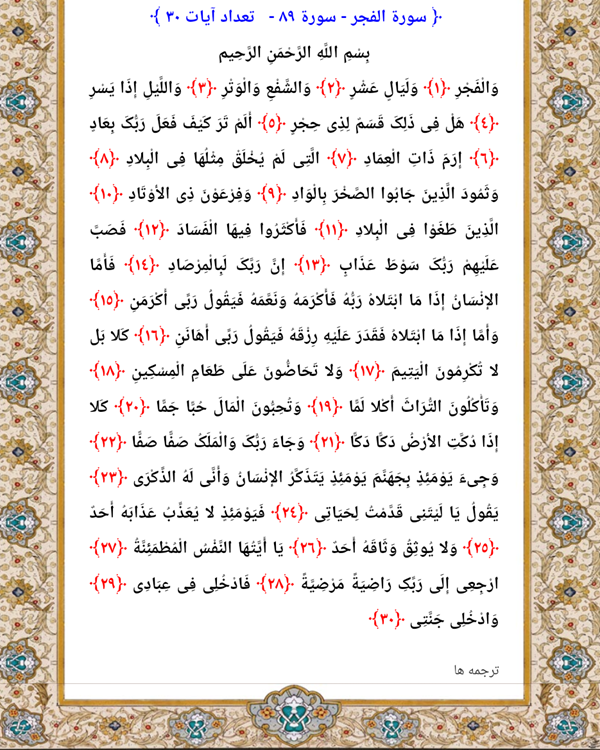 ﴿ سورة الفجر - سورة ۸۹ - تعداد آیات ۳۰ ﴾
بِسْمِ اللَّهِ الرَّحْمَنِ الرَّحِیمِ
وَالْفَجْرِ ﴿۱﴾ وَلَیَالٍ عَشْرٍ ﴿۲﴾ وَالشَّفْعِ وَالْوَتْرِ ﴿۳﴾ وَاللَّیْلِ إِذَا یَسْرِ
﴿۴﴾ هَلْ فِی ذَلِکَ قَسَمٌ لِذِی حِجْرٍ ﴿۵﴾ أَلَمْ تَرَ کَیْفَ فَعَلَ رَبُّکَ بِعَادٍ
﴿۶﴾ إِرَمَ ذَاتِ الْعِمَادِ ﴿۷﴾ الَّتِی لَمْ یُخْلَقْ مِثْلُهَا فِی الْبِلادِ ﴿۸﴾
وَثَمُودَ الَّذِینَ جَابُوا الصَّخْرَ بِالْوَادِ ﴿۹﴾ وَفِرْعَوْنَ ذِی الأوْتَادِ ﴿۱۰﴾
الَّذِینَ طَغَوْا فِی الْبِلادِ ﴿۱۱﴾ فَأَکْثَرُوا فِیهَا الْفَسَادَ ﴿۱۲﴾ فَصَبَّ
عَلَیْهِمْ رَبُّکَ سَوْطَ عَذَابٍ ﴿۱۳﴾ إِنَّ رَبَّکَ لَبِالْمِرْصَادِ ﴿۱۴﴾ فَأَمَّا
الإنْسَانُ إِذَا مَا ابْتَلاهُ رَبُّهُ فَأَکْرَمَهُ وَنَعَّمَهُ فَیَقُولُ رَبِّی أَکْرَمَنِ ﴿۱۵﴾
وَأَمَّا إِذَا مَا ابْتَلاهُ فَقَدَرَ عَلَیْهِ رِزْقَهُ فَیَقُولُ رَبِّی أَهَانَنِ ﴿۱۶﴾ کَلا بَل
لا تُکْرِمُونَ الْیَتِیمَ ﴿۱۷﴾ وَلا تَحَاضُّونَ عَلَى طَعَامِ الْمِسْکِینِ ﴿۱۸﴾
وَتَأْکُلُونَ التُّرَاثَ أَکْلا لَمًّا ﴿۱۹﴾ وَتُحِبُّونَ الْمَالَ حُبًّا جَمًّا ﴿۲۰﴾ کَلا
إِذَا دُکَّتِ الأرْضُ دَکًّا دَکًّا ﴿۲۱﴾ وَجَاءَ رَبُّکَ وَالْمَلَکُ صَفًّا صَفًّا ﴿۲۲﴾
وَجِیءَ یَوْمَئِذٍ بِجَهَنَّمَ یَوْمَئِذٍ یَتَذَکَّرُ الإنْسَانُ وَأَنَّى لَهُ الذِّکْرَى ﴿۲۳﴾
یَقُولُ یَا لَیْتَنِی قَدَّمْتُ لِحَیَاتِی ﴿۲۴﴾ فَیَوْمَئِذٍ لا یُعَذِّبُ عَذَابَهُ أَحَدٌ
﴿۲۵﴾ وَلا یُوثِقُ وَثَاقَهُ أَحَدٌ ﴿۲۶﴾ یَا أَیَّتُهَا النَّفْسُ الْمُطْمَئِنَّةُ ﴿۲۷﴾
ارْجِعِی إِلَى رَبِّکِ رَاضِیَةً مَرْضِیَّةً ﴿۲۸﴾ فَادْخُلِی فِی عِبَادِی ﴿۲۹﴾
وَادْخُلِی جَنَّتِی ﴿۳۰﴾
ترجمه ها